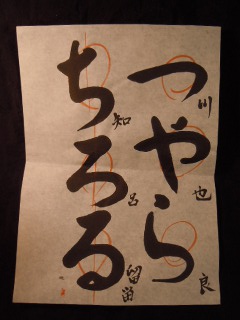 つやら
川也良
ちろる
知呂留